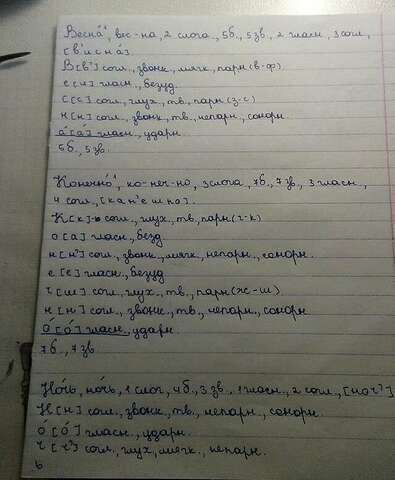 Весна́¹, вес-на, 2 слога, 5б., 5 зв., 2 гласн., 3 согл.,
[в'и с н а́]
В [в'] согл., звонк., мягк., парн (в-ф)
е [и] гласн., безуд.
с [с] согл., глух., тв., парн (з-с)
н [н] согл., звонк., тв., непарн., сонорн.
а́ [а́] гласн., ударн.
5б., 5 зв.
Конечно́¹, ко-неч-но, 3 слога, 7б., 7 зв., 3 гласн.,
4 согл., [к а н' е ш н о].
К [к] согл., глух., тв., парн (г-к)
о [а] гласн., безуд.
н [н'] согл., звонк., мягк., непарн., сонорн.
е [е] гласн., безуд.
ч [ш] согл., глух., тв., парн (ж-ш).
н [н] согл., звонк., тв., непарн., сонорн
о́ [о́] гласн., ударн.
7б., 7 зв
Но́чь, но́чь, 1 слог, 4 б., 3 зв., 1 гласн., 2 согл., [ноч']
Н [н] согл., звонк., тв., непарн., сонорн.
о́ [о́] гласн., ударн.
ч [ч'] согл., глух., мягк., непарн.
ь